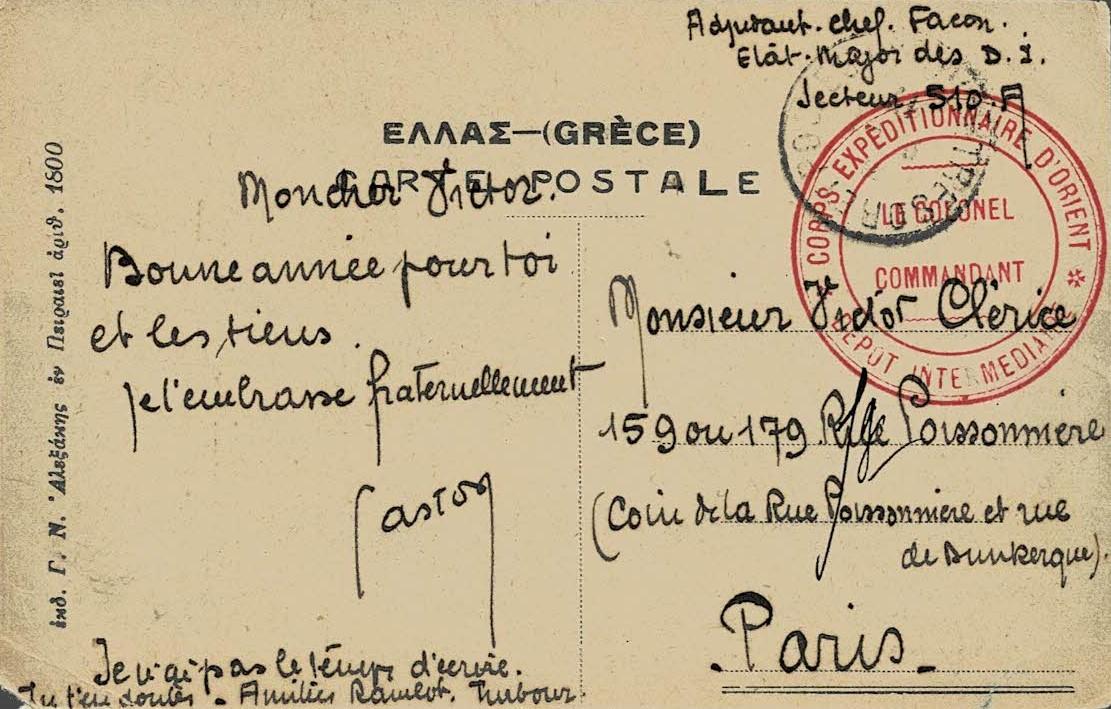 Adjudant-chef. Facon.
Etât-Major des D. I.
Secteur 510. A
ΕΛΛΑΣ—(GRÈCE)
CARTE POSTALE
Mon cher Victor.
Bonne année pour toi
et les tiens.
Je t'embrasse fraternellement
Gaston
Je n'ai pas le temps d'écrire.
Tu t'en doutes - Amitiés
ἐκδ. Γ. Ν. Ἀλεξάκης ἐν Πειραιεῖ ἀριθ. 1800
CORPS EXPÉDITIONNAIRE D'ORIENT
LE COLONEL
COMMANDANT
DÉPOT INTERMEDIAIRE
TRESOR
Monsieur Victor Clérice
159 ou 179 Poissonnière
(Coin de la Rue Poissonnière et rue
de Dunkerque).
Paris